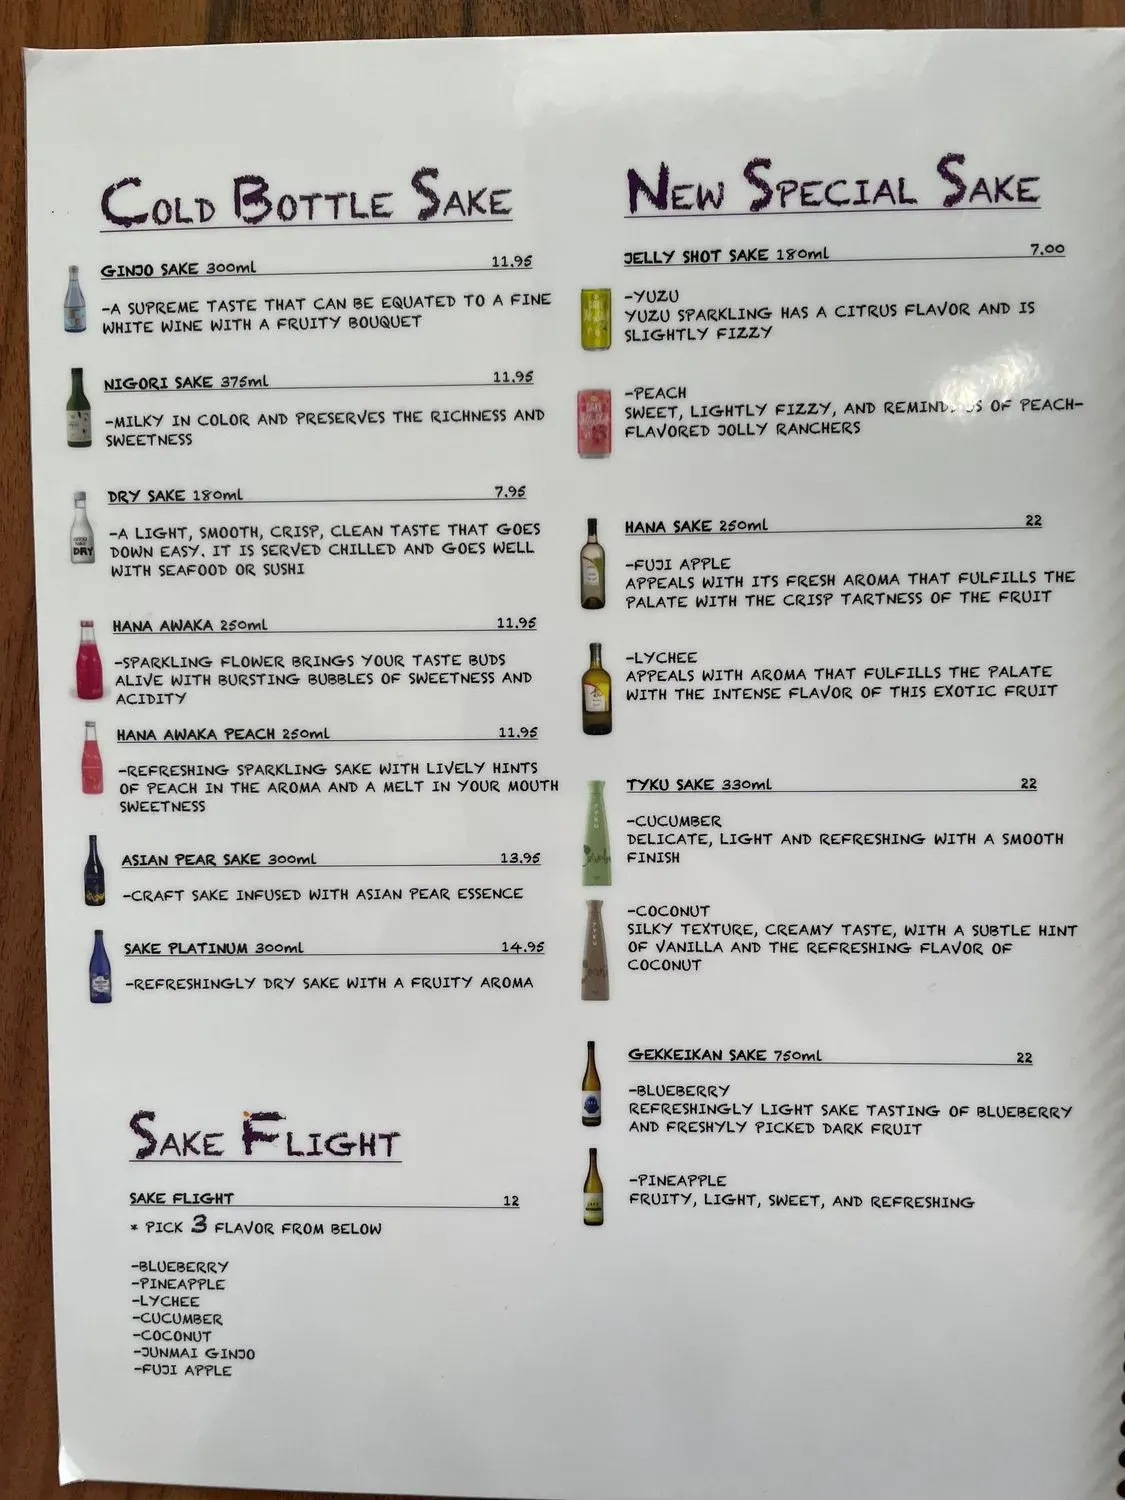 COLD BOTTLE SAKE
GINJO SAKE 300ml 11.95
-A SUPREME TASTE THAT CAN BE EQUATED TO A FINE
WHITE WINE WITH A FRUITY BOUQUET
NIGORI SAKE 375ml 11.95
-MILKY IN COLOR AND PRESERVES THE RICHNESS AND
SWEETNESS
DRY SAKE 180ml 7.95
-A LIGHT, SMOOTH, CRISP, CLEAN TASTE THAT GOES
DOWN EASY. IT IS SERVED CHILLED AND GOES WELL
WITH SEAFOOD OR SUSHI
DRY
HANA AWAKA 250ml 11.95
-SPARKLING FLOWER BRINGS YOUR TASTE BUDS
ALIVE WITH BURSTING BUBBLES OF SWEETNESS AND
ACIDITY
HANA AWAKA PEACH 250ml 11.95
-REFRESHING SPARKLING SAKE WITH LIVELY HINTS
OF PEACH IN THE AROMA AND A MELT IN YOUR MOUTH
SWEETNESS
ASIAN PEAR SAKE 300ml 13.95
-CRAFT SAKE INFUSED WITH ASIAN PEAR ESSENCE
SAKE PLATINUM 300ml 14.95
-REFRESHINGLY DRY SAKE WITH A FRUITY AROMA
SAKE FLIGHT
SAKE FLIGHT 12
* PICK 3 FLAVOR FROM BELOW
-BLUEBERRY
-PINEAPPLE
-LYCHEE
-CUCUMBER
-COCONUT
-JUNMAI GINJO
-FUJI APPLE
NEW SPECIAL SAKE
JELLY SHOT SAKE 180ml 7.00
-YUZU
YUZU SPARKLING HAS A CITRUS FLAVOR AND IS
SLIGHTLY FIZZY
-PEACH
SWEET, LIGHTLY FIZZY, AND OF PEACH-
FLAVORED JOLLY RANCHERS
HANA SAKE 250ml 22
-FUJI APPLE
APPEALS WITH ITS FRESH AROMA THAT FULFILLS THE
PALATE WITH THE CRISP TARTNESS OF THE FRUIT
-LYCHEE
APPEALS WITH AROMA THAT FULFILLS THE PALATE
WITH THE INTENSE FLAVOR OF THIS EXOTIC FRUIT
TYKU SAKE 330ml 22
TYKU
-CUCUMBER
DELICATE, LIGHT AND REFRESHING WITH A SMOOTH
FINISH
TYKU
-COCONUT
SILKY TEXTURE, CREAMY TASTE, WITH A SUBTLE HINT
OF VANILLA AND THE REFRESHING FLAVOR OF
COCONUT
GEKKEIKAN SAKE 750ml 22
-BLUEBERRY
REFRESHINGLY LIGHT SAKE TASTING OF BLUEBERRY
AND FRESHYLY PICKED DARK FRUIT
-PINEAPPLE
FRUITY, LIGHT, SWEET, AND REFRESHING